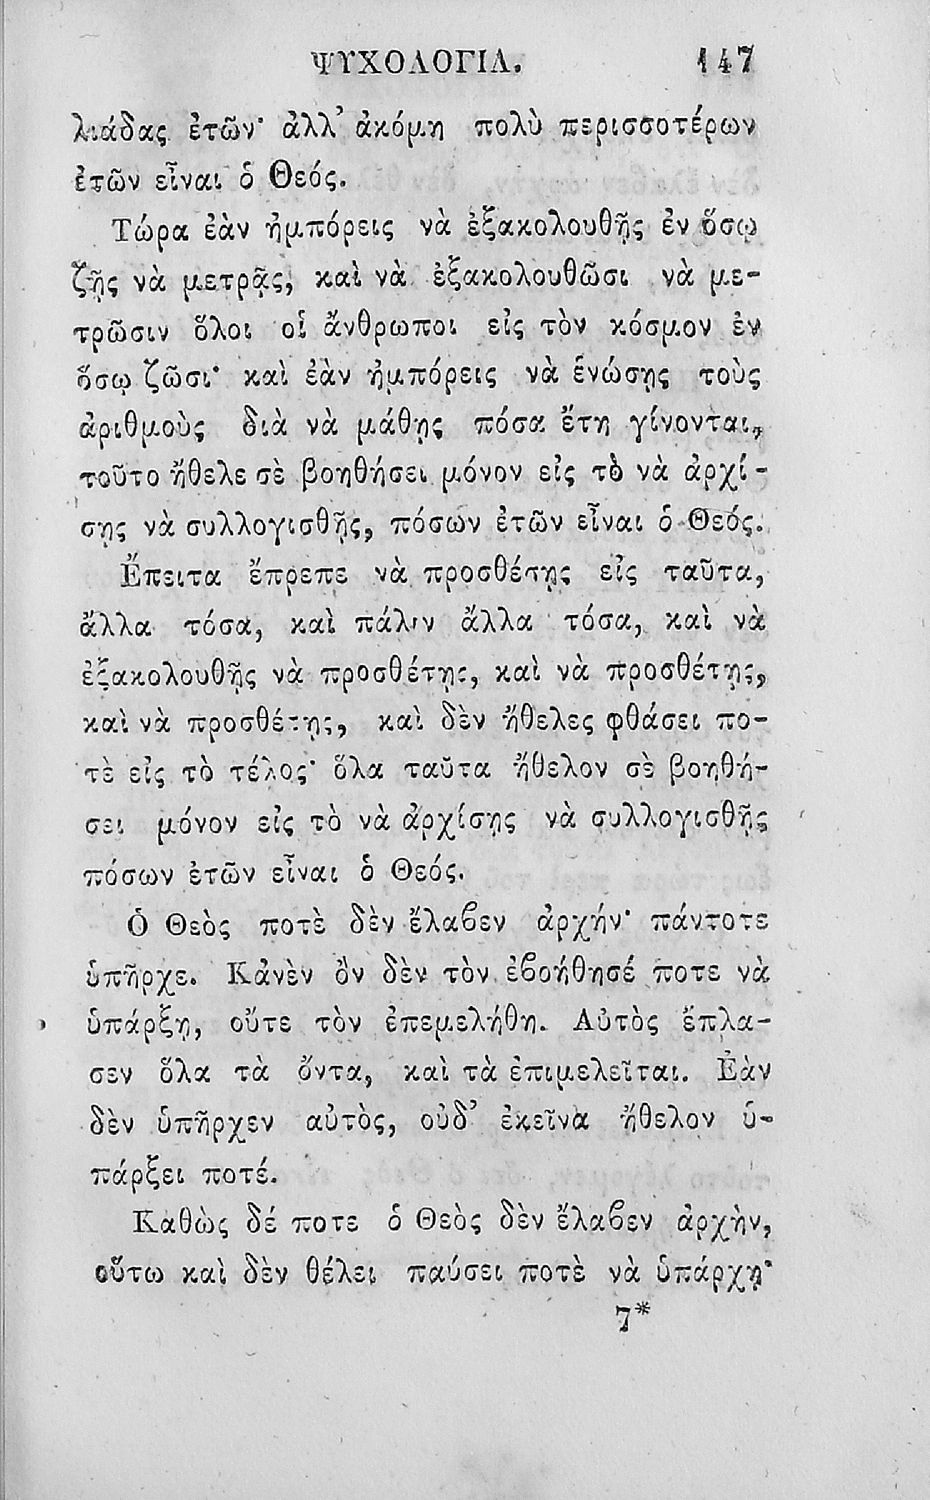 ΨΥΧΟΛΟΓΙΑ. 147
λιάδας ἐτῶν· ἀλλ' ἀκόμη πολὺ περισσοτέρων
ἐτῶν εἶναι ὁ Θεός.
Τώρα ἐὰν ἠμπόρεις νὰ ἐξακολουθῇς ἐν ὅσῳ
ζῇς νὰ μετρᾷς, καὶ νὰ ἐξακολουθῶσι νὰ με-
τρῶσιν ὅλοι οἱ ἄνθρωποι εἰς τὸν κόσμον ἐν
ὅσῳ ζῶσι· καὶ ἐὰν ἠμπόρεις νὰ ἑνώσῃς τοὺς
ἀριθμοὺς διὰ νὰ μάθῃς πόσα ἔτη γίνονται,
τοῦτο ἤθελε σὲ βοηθήσει μόνον εἰς τὸ νὰ ἀρχί-
σῃς νὰ συλλογισθῇς, πόσων ἐτῶν εἶναι ὁ Θεός.
Ἔπειτα ἔπρεπε νὰ προσθέσῃς εἰς ταῦτα,
ἄλλα τόσα, καὶ πάλιν ἄλλα τόσα, καὶ νὰ
ἐξακολουθῇς νὰ προσθέτῃς, καὶ νὰ προσθέτῃς,
καὶ νὰ προσθέτῃς, καὶ δὲν ἤθελες φθάσει πο-
τὲ εἰς τὸ τέλος· ὅλα ταῦτα ἤθελον σὲ βοηθή-
σει μόνον εἰς τὸ νὰ ἀρχίσῃς νὰ συλλογισθῇς
πόσων ἐτῶν εἶναι ὁ Θεός.
Ὁ Θεὸς ποτὲ δὲν ἔλαβεν ἀρχήν· πάντοτε
ὑπῆρχε. Κἀνὲν ὂν δὲν τὸν ἐβοήθησέ ποτε νὰ
ὑπάρξῃ, οὔτε τὸν ἐπεμελήθη. Αὐτὸς ἔπλα-
σεν ὅλα τὰ ὄντα, καὶ τὰ ἐπιμελεῖται. Ἐὰν
δὲν ὑπῆρχεν αὐτὸς, οὐδ' ἐκεῖνα ἤθελον ὑ-
πάρξει ποτέ.
Καθὼς δέ ποτε ὁ Θεὸς δὲν ἔλαβεν ἀρχὴν,
οὕτω καὶ δὲν θέλει παύσει ποτὲ νὰ ὑπάρχῃ·
7*